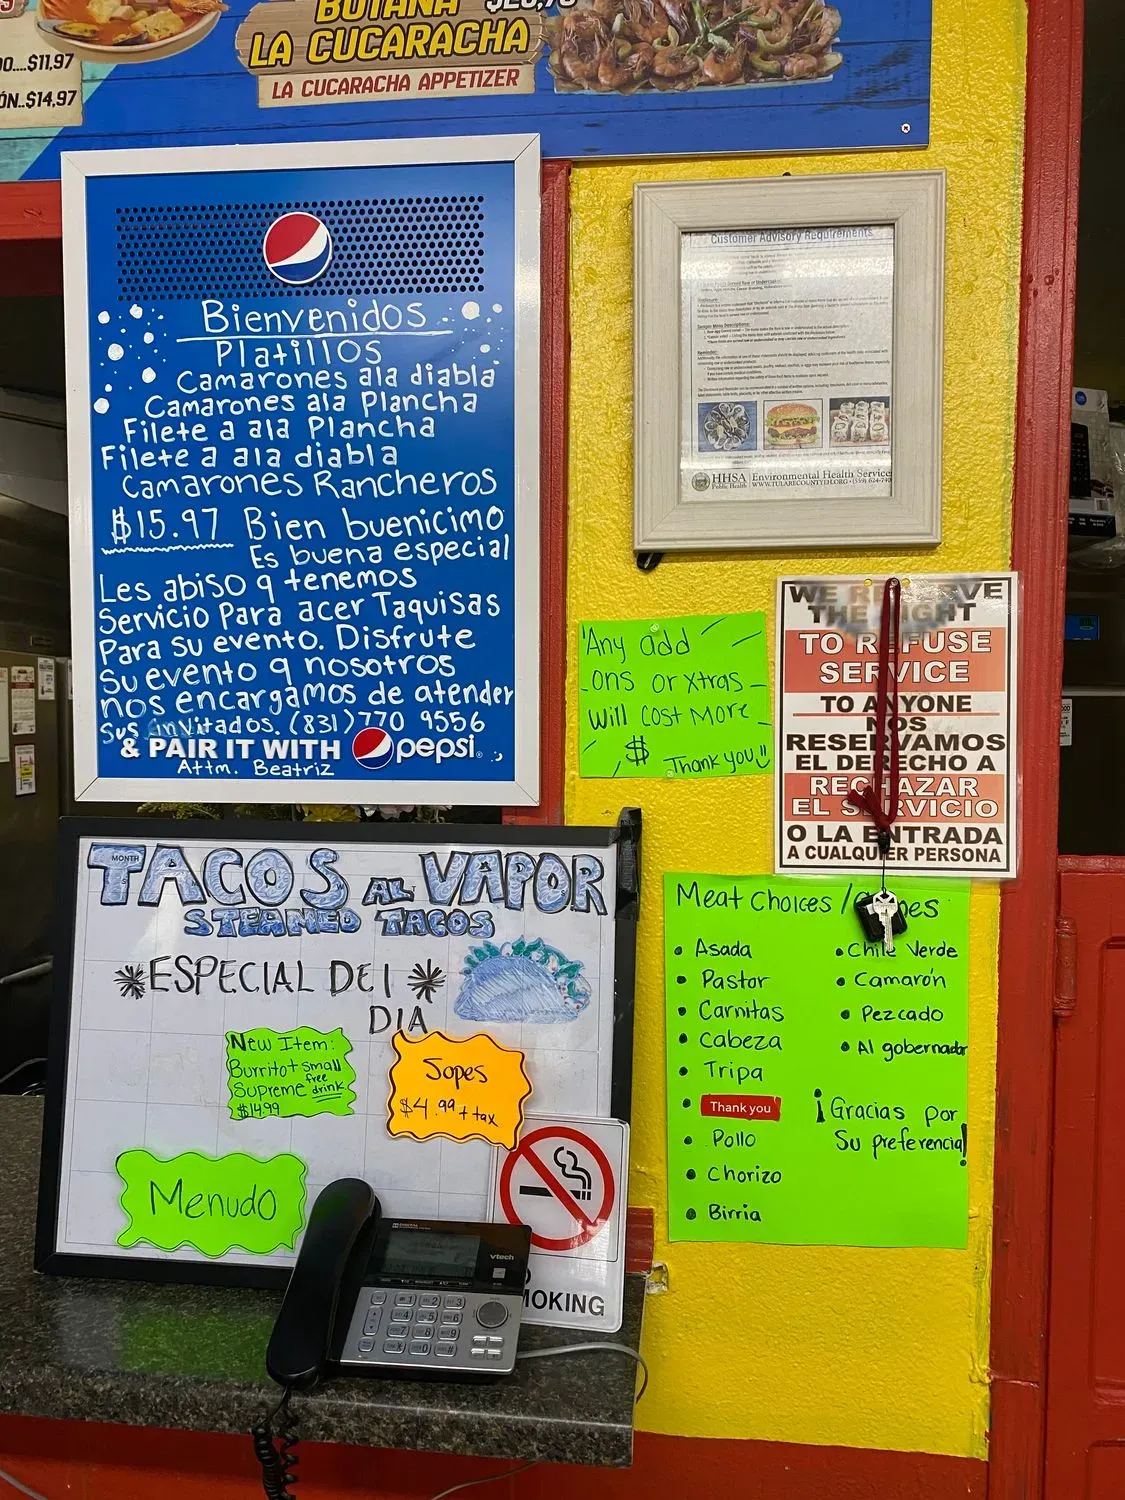 BOTANA
LA CUCARACHA
LA CUCARACHA APPETIZER
....$11,97
ÓN..$14,97
Bienvenidos
Platillos
Camarones ala diabla
Camarones ala Plancha
Filete a ala Plancha
Filete a ala diabla
Camarones Rancheros
$15.97 Bien buenicimo
Es buena especial
Les abiso q tenemos
Servicio Para acer Taquisas
Para su evento. Disfrute
Su evento q nosotros
nos encargamos de atender
Sus invitados. (831) 770 9556
& PAIR IT WITH pepsi
Attm. Beatriz
Customer Advisory Requirements
Sample Menu Descriptions:
Reminder:
HHSA Environmental Health Service
Public Health WWW.TULARECOUNTYEH.ORG • (559) 624-740
Any add
ons or xtras
Will cost More
$ Thank you
WE RESERVE
THE RIGHT
TO REFUSE
SERVICE
TO ANYONE
NOS
RESERVAMOS
EL DERECHO A
RECHAZAR
EL SERVICIO
O LA ENTRADA
A CUALQUIER PERSONA
MONTH
TACOS AL VAPOR
STEAMED TACOS
*ESPECIAL DEl *
DIA
New Item:
Burrito + small
Supreme free drink
$14.99
Sopes
$4.99 + tax
Menudo
vtech
MOKING
Meat Choices /
• Asada
• Pastor
• Carnitas
• Cabeza
• Tripa
• Thank you
• Pollo
• Chorizo
• Birria
• Chile Verde
• Camarón
• Pezcado
• Al gobernador
¡Gracias por
Su preferencia!